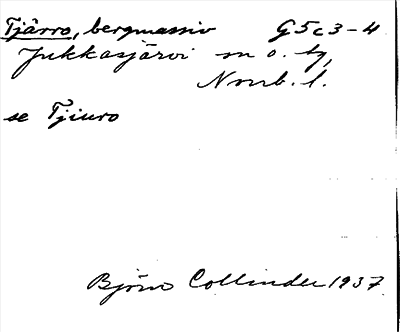 Tjärro, bergmassiv G5c3-4
Jukkasjärvi sn o. tg,
Norrb. l.
se Tjiuro
Björn Collinder 1937